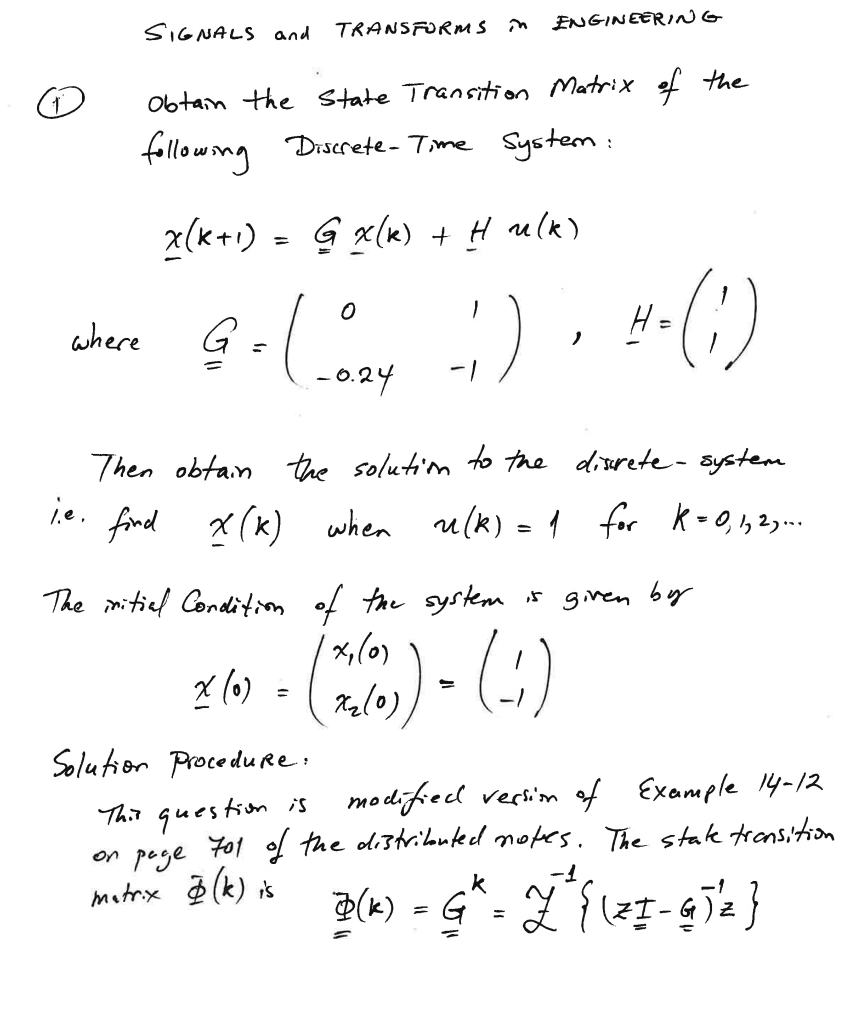 SIGNALS and TRANSFORMS in ENGINEERING
① Obtain the State Transition Matrix of the
following Discrete-Time System:
x(k+1) = G x(k) + H u(k)
where G = ( 0 1 ; -0.24 -1 ) , H = ( 1 ; 1 )
Then obtain the solution to the discrete-system
i.e. find x(k) when u(k) = 1 for k = 0, 1, 2, ...
The initial Condition of the system is given by
x(0) = ( x₁(0) ; x₂(0) ) = ( 1 ; -1 )
Solution Procedure:
This question is modified version of Example 14-12
on page 701 of the distributed notes. The state transition
matrix Φ(k) is
Φ(k) = G^k = Z^-1 { (zI - G)^-1 z }